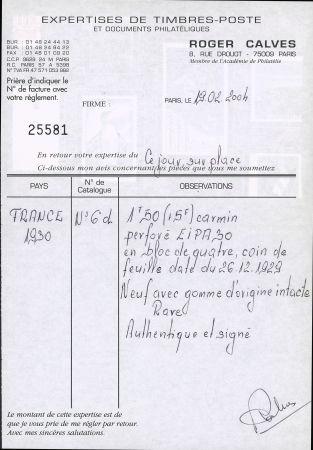 EXPERTISES DE TIMBRES-POSTE
ET DOCUMENTS PHILATÉLIQUES
BUR. : 01 48 24 44 13
BUR. : 01 48 24 84 22
FAX : 48 01 09 20
C.C.P. 9829 24 M PARIS
R.C. PARIS 57 A 5398
N° TVA FR 47 571 053 982
ROGER CALVES
8, RUE DROUOT - 75009 PARIS
Membre de l'Académie de Philatélie
Prière d'indiquer le
N° de facture avec
votre règlement.
FIRME :
PARIS, LE 19.02.2004
25581
En retour votre expertise du Ce jour, sur place
Ci-dessous mon avis concernant les pièces que vous me soumettez
PAYS
N° de Catalogue
OBSERVATIONS
FRANCE N° 6d 1F50 (+5F) carmin
1930 perforé EIPA30
en bloc de quatre, coin de
feuille daté du 26.12.1929
Neuf avec gomme d'origine intacte
Rare
Authentique et signé
Le montant de cette expertise est de
que je vous prie de me régler par retour.
Avec mes sincères salutations.
Calves